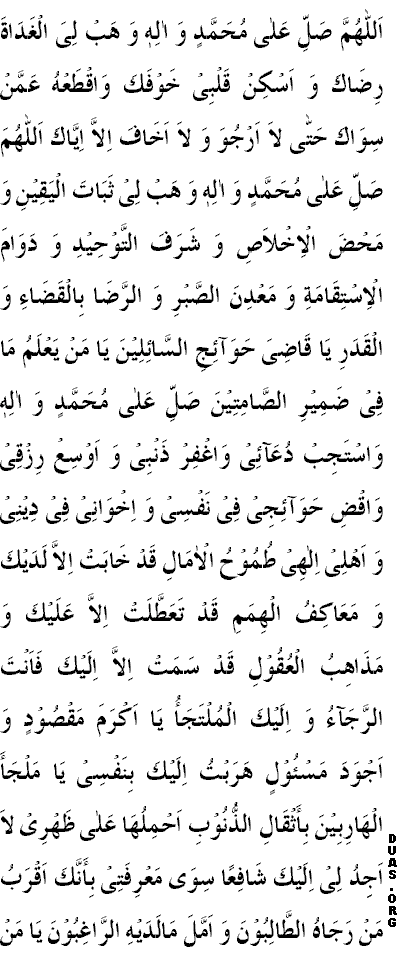 اَللّٰهُمَّ صَلِّ عَلٰى مُحَمَّدٍ وَ اٰلِهٖ وَ هَبْ لِىَ الْغَدَاةَ
رِضَاكَ وَ اَسْكِنْ قَلْبِىْ خَوْفَكَ وَاقْطَعْهُ عَمَّنْ
سِوَاكَ حَتّٰى لاَ اَرْجُوَ وَ لاَ اَخَافَ اِلاَّ اِيَّاكَ اَللّٰهُمَّ
صَلِّ عَلٰى مُحَمَّدٍ وَ اٰلِهٖ وَ هَبْ لِىْ ثَبَاتَ الْيَقِيْنِ وَ
مَحْضَ الْاِخْلاَصِ وَ شَرَفَ التَّوْحِيْدِ وَ دَوَامَ
الْاِسْتِقَامَةِ وَ مَعْدِنَ الصَّبْرِ وَ الرَّضَا بِالْقَضَاءِ وَ
الْقَدَرِ يَا قَاضِىَ حَوَآئِجِ السَّائِلِيْنَ يَا مَنْ يَعْلَمُ مَا
فِىْ ضَمِيْرِ الصَّامِتِيْنَ صَلِّ عَلٰى مُحَمَّدٍ وَ اٰلِهٖ
وَاسْتَجِبْ دُعَآئِىْ وَاغْفِرْ ذَنْبِىْ وَ اَوْسِعْ رِزْقِىْ
وَاقْضِ حَوَآئِجِىْ فِىْ نَفْسِىْ وَ اِخْوَانِىْ فِىْ دِيْنِىْ
وَ اَهْلِىْ اِلٰهِىْ طُمُوْحُ الْاٰمَالِ قَدْ خَابَتْ اِلاَّ لَدَيْكَ
وَ مَعَاكِفُ الْهِمَمِ قَدْ تَعَطَّلَتْ اِلاَّ عَلَيْكَ وَ
مَذَاهِبُ الْعُقُوْلِ قَدْ سَمَتْ اِلاَّ اِلَيْكَ فَاَنْتَ
الرَّجَآءُ وَ اِلَيْكَ الْمُلْتَجَأُ يَا اَكْرَمَ مَقْصُوْدٍ وَ
اَجْوَدَ مَسْئُوْلٍ هَرَبْتُ اِلَيْكَ بِنَفْسِىْ يَا مَلْجَأَ
الْهَارِبِيْنَ بِأَثْقَالِ الذُّنُوْبِ اَحْمِلُهَا عَلٰى ظَهْرِىْ لاَ
اَجِدُ لِىْ اِلَيْكَ شَافِعًا سِوٰى مَعْرِفَتِىْ بِأَنَّكَ اَقْرَبُ
مَنْ رَجَاهُ الطَّالِبُوْنَ وَ اَمَّلَ مَالَدَيْهِ الرَّاغِبُوْنَ يَا مَنْ
DUAS.ORG